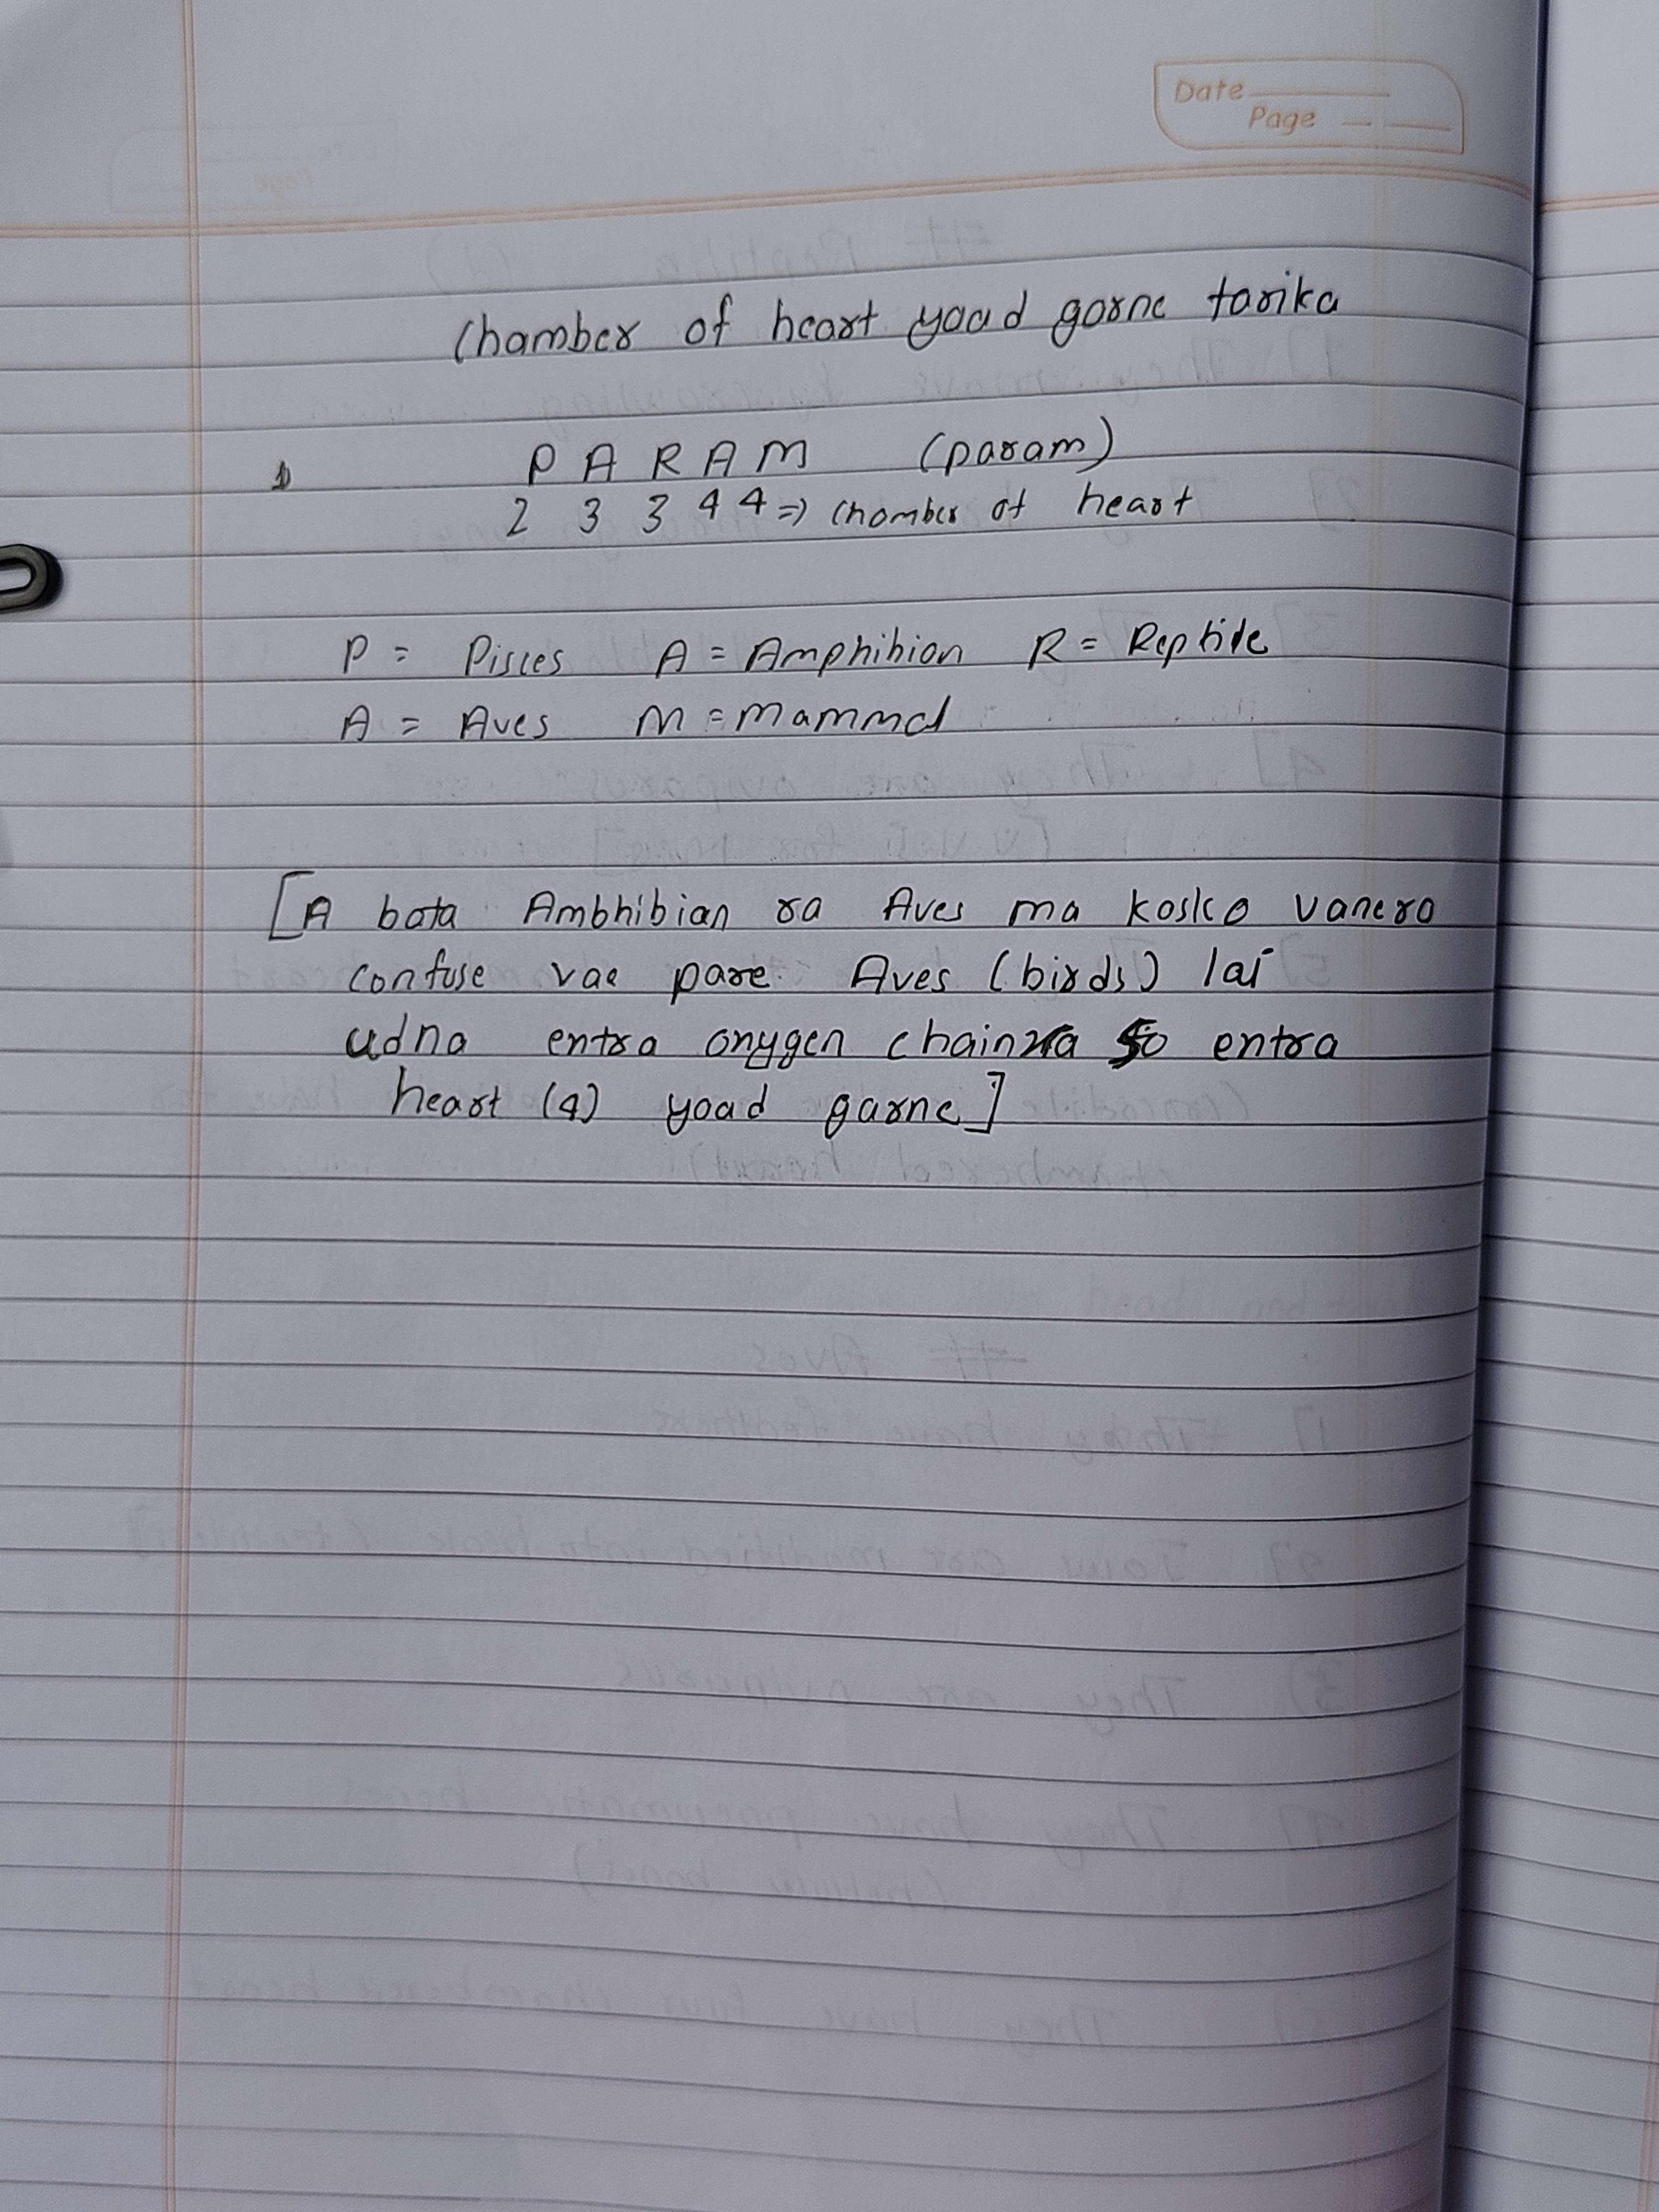 Date
Page
Chamber of heart yaad garne tarika
P A R A M (param)
2 3 3 4 4 => Chamber of heart
P = Pisces A = Amphibian R = Reptile
A = Aves M = Mammal
[A bata Ambhibian ra Aves ma kasko vanera
confuse vae pare Aves (birds) lai
udna extra oxygen chainxa so extra
heart (4) yaad garne]